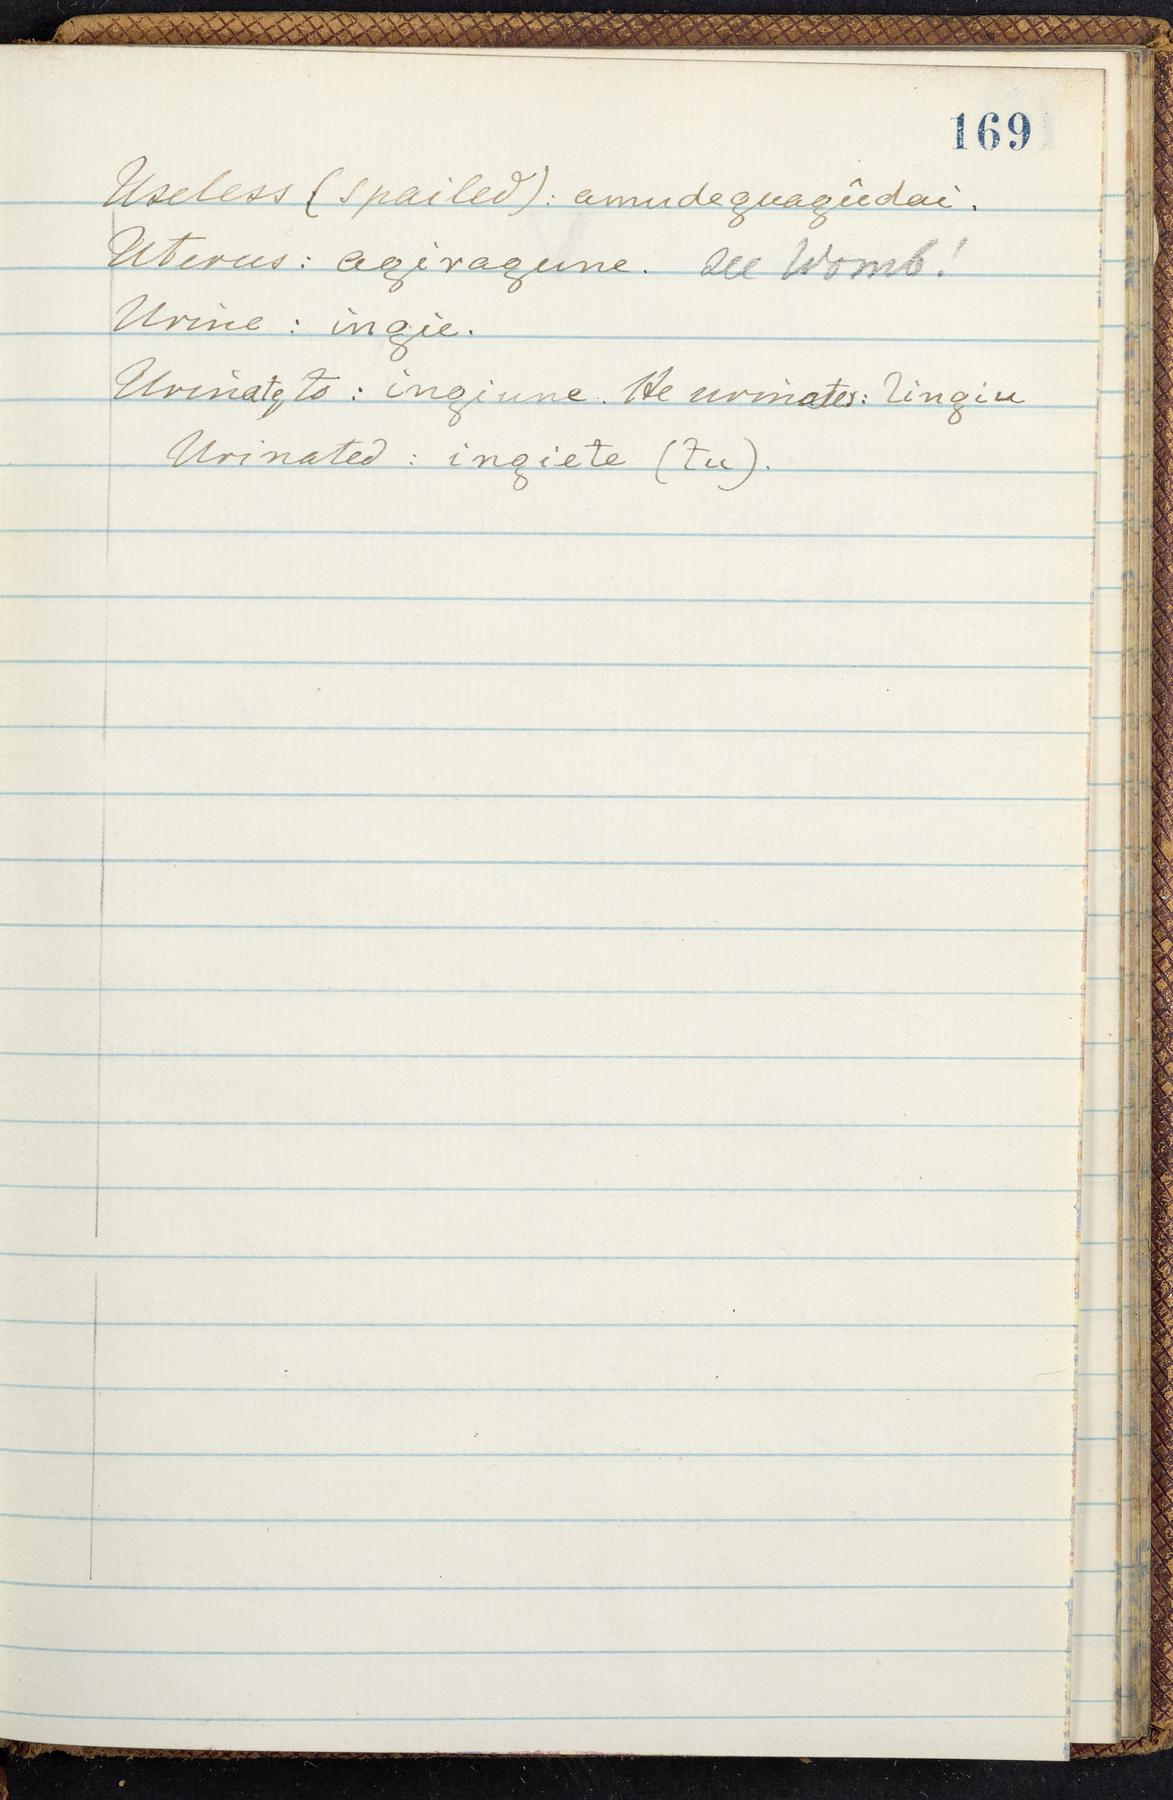 169
Useless (spailed): amudeguagûdai.
Uterus: agiragune. see Womb!
Urine: ingie.
Urinate, to: ingiune. He urinates: lingiu
Urinated: ingiete (tu).